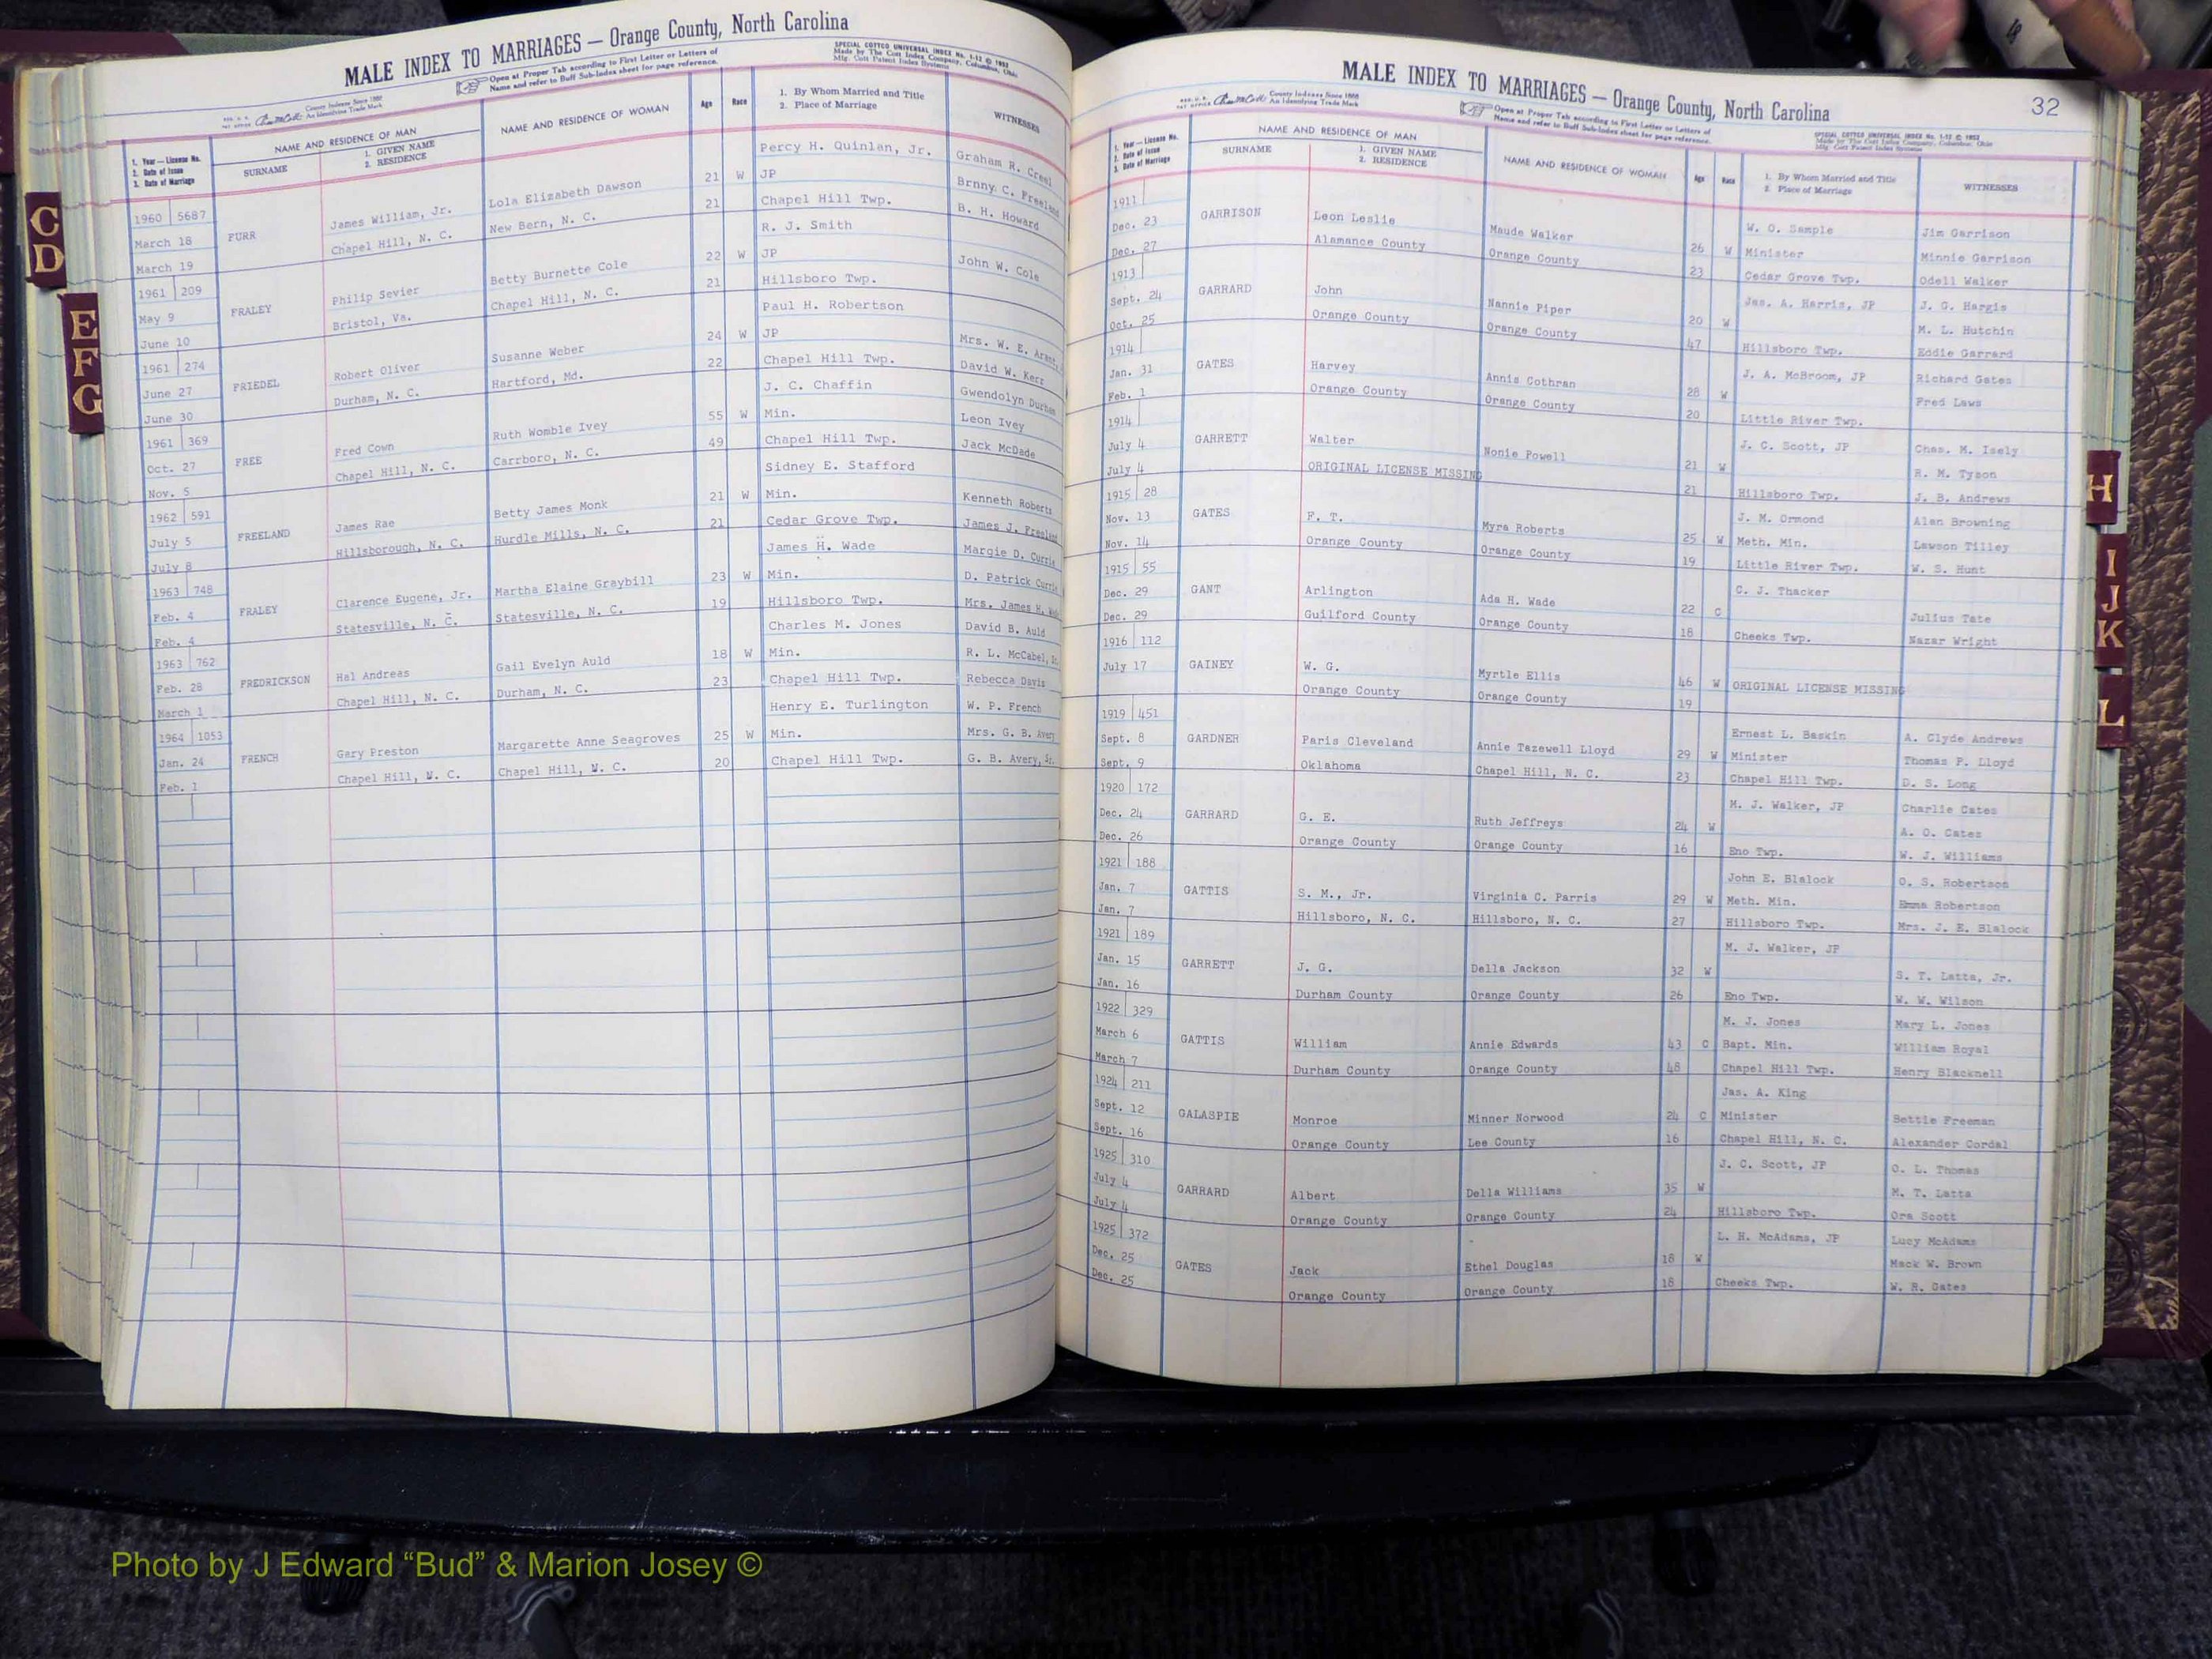 MALE INDEX TO MARRIAGES — Orange County, North Carolina
County Indexes Since 1888
An Identifying Trade Mark
Open at Proper Tab according to First Letter or Letters of
Name and refer to Buff Sub-Index sheet for page reference.
SPECIAL COTTCO UNIVERSAL INDEX No. 1-12 © 1952
Made by The Cott Index Company, Columbus, Ohio
Mfg. Cott Patent Index Systems
1. Year — License No.
2. Date of Issue
3. Date of Marriage
NAME AND RESIDENCE OF MAN
SURNAME
1. GIVEN NAME
2. RESIDENCE
NAME AND RESIDENCE OF WOMAN
Age
Race
1. By Whom Married and Title
2. Place of Marriage
WITNESSES
1960 5687 Percy H. Quinlan, Jr. Graham R. Creel
March 18 FURR James William, Jr. Lola Elizabeth Dawson 21 W JP Brnny C. Freeland
March 19 Chapel Hill, N. C. New Bern, N. C. 21 Chapel Hill Twp. B. H. Howard
1961 209 R. J. Smith
May 9 FRALEY Philip Sevier Betty Burnette Cole 22 W JP John W. Cole
June 10 Bristol, Va. Chapel Hill, N. C. 21 Hillsboro Twp.
1961 274 Paul H. Robertson
June 27 FRIEDEL Robert Oliver Susanne Weber 24 W JP Mrs. W. E.
June 30 Durham, N. C. Hartford, Md. 22 Chapel Hill Twp. David W. Kerr
1961 369 J. C. Chaffin Gwendolyn Durham
Oct. 27 FREE Fred Cown Ruth Womble Ivey 55 W Min. Leon Ivey
Nov. 5 Chapel Hill, N. C. Carrboro, N. C. 49 Chapel Hill Twp. Jack McDade
1962 591 Sidney E. Stafford
July 5 FREELAND James Rae Betty James Monk 21 W Min. Kenneth Roberts
July 8 Hillsborough, N. C. Hurdle Mills, N. C. 21 Cedar Grove Twp. James J. Freeland
1963 748 James H. Wade Margie D. Currie
Feb. 4 FRALEY Clarence Eugene, Jr. Martha Elaine Graybill 23 W Min. D. Patrick Currie
Feb. 4 Statesville, N. C. Statesville, N. C. 19 Hillsboro Twp. Mrs. James H.
1963 762 Charles M. Jones David B. Auld
Feb. 28 FREDRICKSON Hal Andreas Gail Evelyn Auld 18 W Min. R. L. McCabel,
March 1 Chapel Hill, N. C. Durham, N. C. 23 Chapel Hill Twp. Rebecca Davis
1964 1053 Henry E. Turlington W. P. French
Jan. 24 FRENCH Gary Preston Margarette Anne Seagroves 25 W Min. Mrs. G. B. Avery
Feb. 1 Chapel Hill, N. C. Chapel Hill, N. C. 20 Chapel Hill Twp. G. B. Avery, Sr.
C
D
E
F
G
MALE INDEX TO MARRIAGES — Orange County, North Carolina
32
County Indexes Since 1888
An Identifying Trade Mark
Open at Proper Tab according to First Letter or Letters of
Name and refer to Buff Sub-Index sheet for page reference.
SPECIAL COTTCO UNIVERSAL INDEX No. 1-12 © 1952
Made by The Cott Index Company, Columbus, Ohio
Mfg. Cott Patent Index Systems
1. Year — License No.
2. Date of Issue
3. Date of Marriage
NAME AND RESIDENCE OF MAN
SURNAME
1. GIVEN NAME
2. RESIDENCE
NAME AND RESIDENCE OF WOMAN
Age
Race
1. By Whom Married and Title
2. Place of Marriage
WITNESSES
1911 W. O. Sample Jim Garrison
Dec. 23 GARRISON Leon Leslie Maude Walker 26 W Minister Minnie Garrison
Dec. 27 Alamance County Orange County 23 Cedar Grove Twp. Odell Walker
1913 Jas. A. Harris, JP J. G. Hargis
Sept. 24 GARRARD John Nannie Piper 20 W M. L. Hutchin
Oct. 25 Orange County Orange County 47 Hillsboro Twp. Eddie Garrard
1914 J. A. McBroom, JP Richard Gates
Jan. 31 GATES Harvey Annis Cothran 28 W Fred Laws
Feb. 1 Orange County Orange County 20 Little River Twp.
1914 J. C. Scott, JP Chas. M. Isely
July 4 GARRETT Walter Nonie Powell 21 W R. M. Tyson
July 4 ORIGINAL LICENSE MISSING 21 Hillsboro Twp. J. B. Andrews
1915 28 J. M. Ormond Alen Browning
Nov. 13 GATES F. T. Myra Roberts 25 W Meth. Min. Lawson Tilley
Nov. 14 Orange County Orange County 19 Little River Twp. W. S. Hunt
1915 55 C. J. Thacker
Dec. 29 GANT Arlington Ada H. Wade 22 C Julius Tate
Dec. 29 Guilford County Orange County 18 Cheeks Twp. Nazar Wright
1916 112
July 17 GAINEY W. G. Myrtle Ellis 46 W ORIGINAL LICENSE MISSING
Orange County Orange County 19
1919 451 Ernest L. Baskin A. Clyde Andrews
Sept. 8 GARDNER Paris Cleveland Annie Tazewell Lloyd 29 W Minister Thomas F. Lloyd
Sept. 9 Oklahoma Chapel Hill, N. C. 23 Chapel Hill Twp. D. S. Long
1920 172 M. J. Walker, JP Charlie Cates
Dec. 24 GARRARD G. E. Ruth Jeffreys 24 W A. O. Cates
Dec. 26 Orange County Orange County 16 Eno Twp. W. J. Williams
1921 188 John E. Blalock O. S. Robertson
Jan. 7 GATTIS S. M., Jr. Virginia C. Parris 29 W Meth. Min. Emma Robertson
Jan. 7 Hillsboro, N. C. Hillsboro, N. C. 27 Hillsboro Twp. Mrs. J. E. Blalock
1921 189 M. J. Walker, JP
Jan. 15 GARRETT J. G. Della Jackson 32 W S. T. Latta, Jr.
Jan. 16 Durham County Orange County 26 Eno Twp. W. W. Wilson
1922 329 M. J. Jones Mary L. Jones
March 6 GATTIS William Annie Edwards 43 C Bapt. Min. William Royal
March 7 Durham County Orange County 48 Chapel Hill Twp. Henry Blacknell
1924 211 Jas. A. King
Sept. 12 GALASPIE Monroe Minner Norwood 24 C Minister Bettie Freeman
Sept. 16 Orange County Lee County 16 Chapel Hill, N. C. Alexander Cordal
1925 310 J. C. Scott, JP O. L. Thomas
July 4 GARRARD Albert Della Williams 35 W M. T. Latta
July 4 Orange County Orange County 24 Hillsboro Twp. Ora Scott
1925 372 L. H. McAdams, JP Lucy McAdams
Dec. 25 GATES Jack Ethel Douglas 18 W Mack W. Brown
Dec. 25 Orange County Orange County 18 Cheeks Twp. W. R. Gates
H
I
J
K
L
Photo by J Edward “Bud” & Marion Josey ©